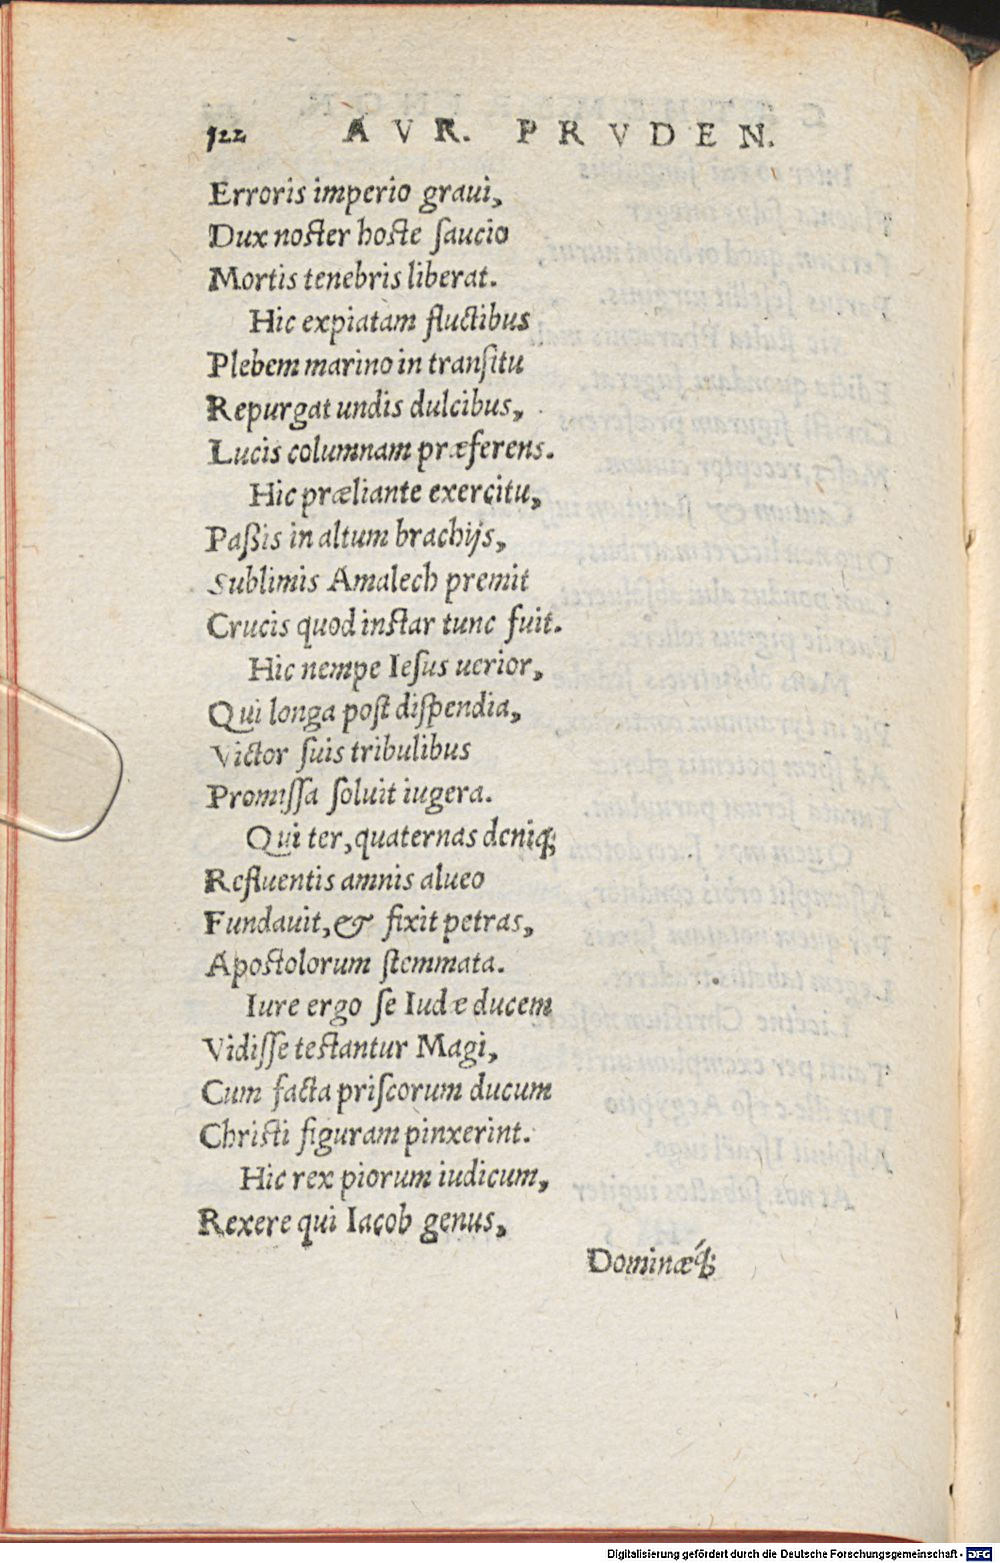 122 AVR. PRVDEN.
Erroris imperio graui,
Dux noster hoste ſaucio
Mortis tenebris liberat.
Hic expiatam fluctibus
Plebem marino in tranſitu
Repurgat undis dulcibus,
Lucis columnam præferens.
Hic præliante exercitu,
Paßis in altum brachijs,
Sublimis Amalech premit
Crucis quod instar tunc fuit.
Hic nempe Ieſus uerior,
Qui longa poſt diſpendia,
Victor ſuis tribulibus
Promiſſa ſoluit iugera.
Qui ter, quaternas deniq;
Refluentis amnis alueo
Fundauit, & fixit petras,
Apostolorum ſtemmata.
Iure ergo ſe Iudæ ducem
Vidiſſe testantur Magi,
Cum facta priſcorum ducum
Christi figuram pinxerint.
Hic rex piorum iudicum,
Rexere qui Iacob genus,
Dominæq́;
Digitalisierung gefördert durch die Deutsche Forschungsgemeinschaft - DFG